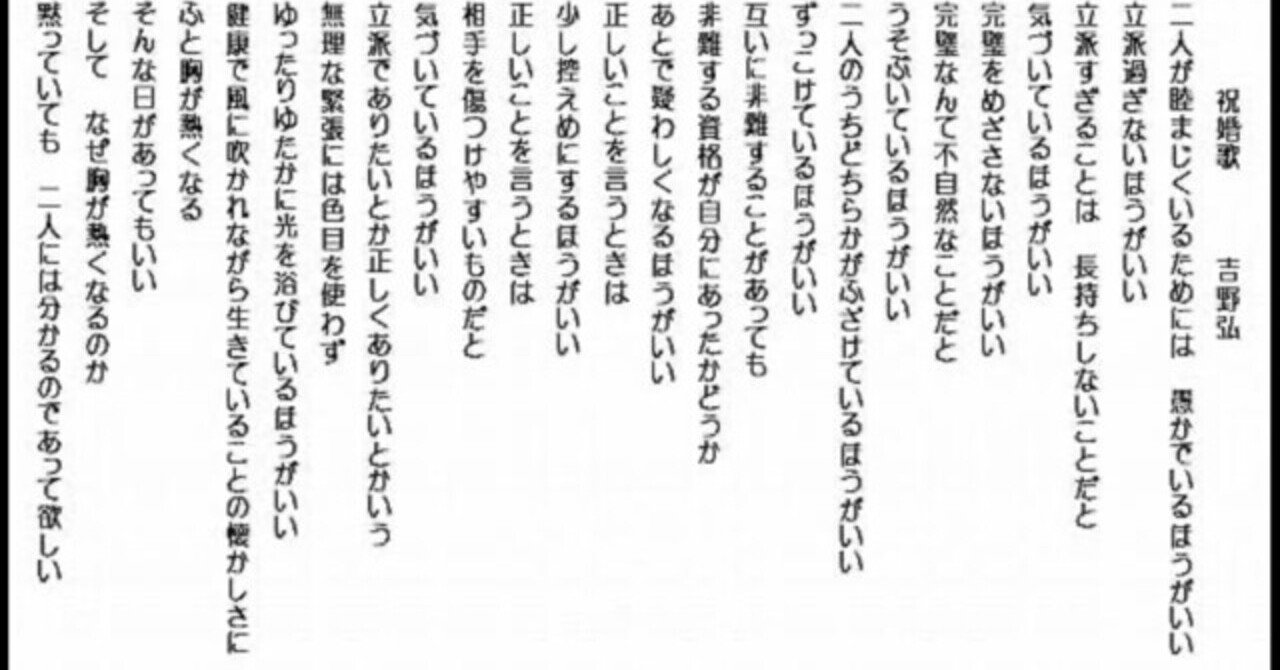 祝婚歌　　吉野弘
二人が睦まじくいるためには　愚かでいるほうがいい
立派過ぎないほうがいい
立派すぎることは　長持ちしないことだと
気づいているほうがいい
完璧をめざさないほうがいい
完璧なんて不自然なことだと
うそぶいているほうがいい
二人のうちどちらかがふざけているほうがいい
ずっこけているほうがいい
互いに非難することがあっても
非難する資格が自分にあったかどうか
あとで疑わしくなるほうがいい
正しいことを言うときは
少し控えめにするほうがいい
正しいことを言うときは
相手を傷つけやすいものだと
気づいているほうがいい
立派でありたいとか正しくありたいとかいう
無理な緊張には色目を使わず
ゆったりゆたかに光を浴びているほうがいい
健康で風に吹かれながら生きていることの懐かしさに
ふと胸が熱くなる
そんな日があってもいい
そして　なぜ胸が熱くなるのか
黙っていても　二人には分かるのであって欲しい